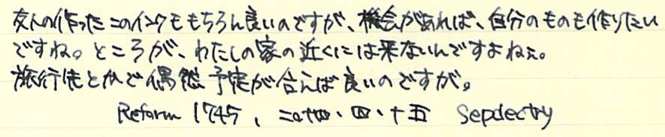 友人の作ったこのインクももちろん良いのですが、機会があれば、自分のものも作りたい
ですね。ところが、わたしの家の近くには来ないんですよねぇ。
旅行先とかで偶然予定が合えば良いのですが。
Reform 1745, 二〇十四・四・十五 Sepdectry